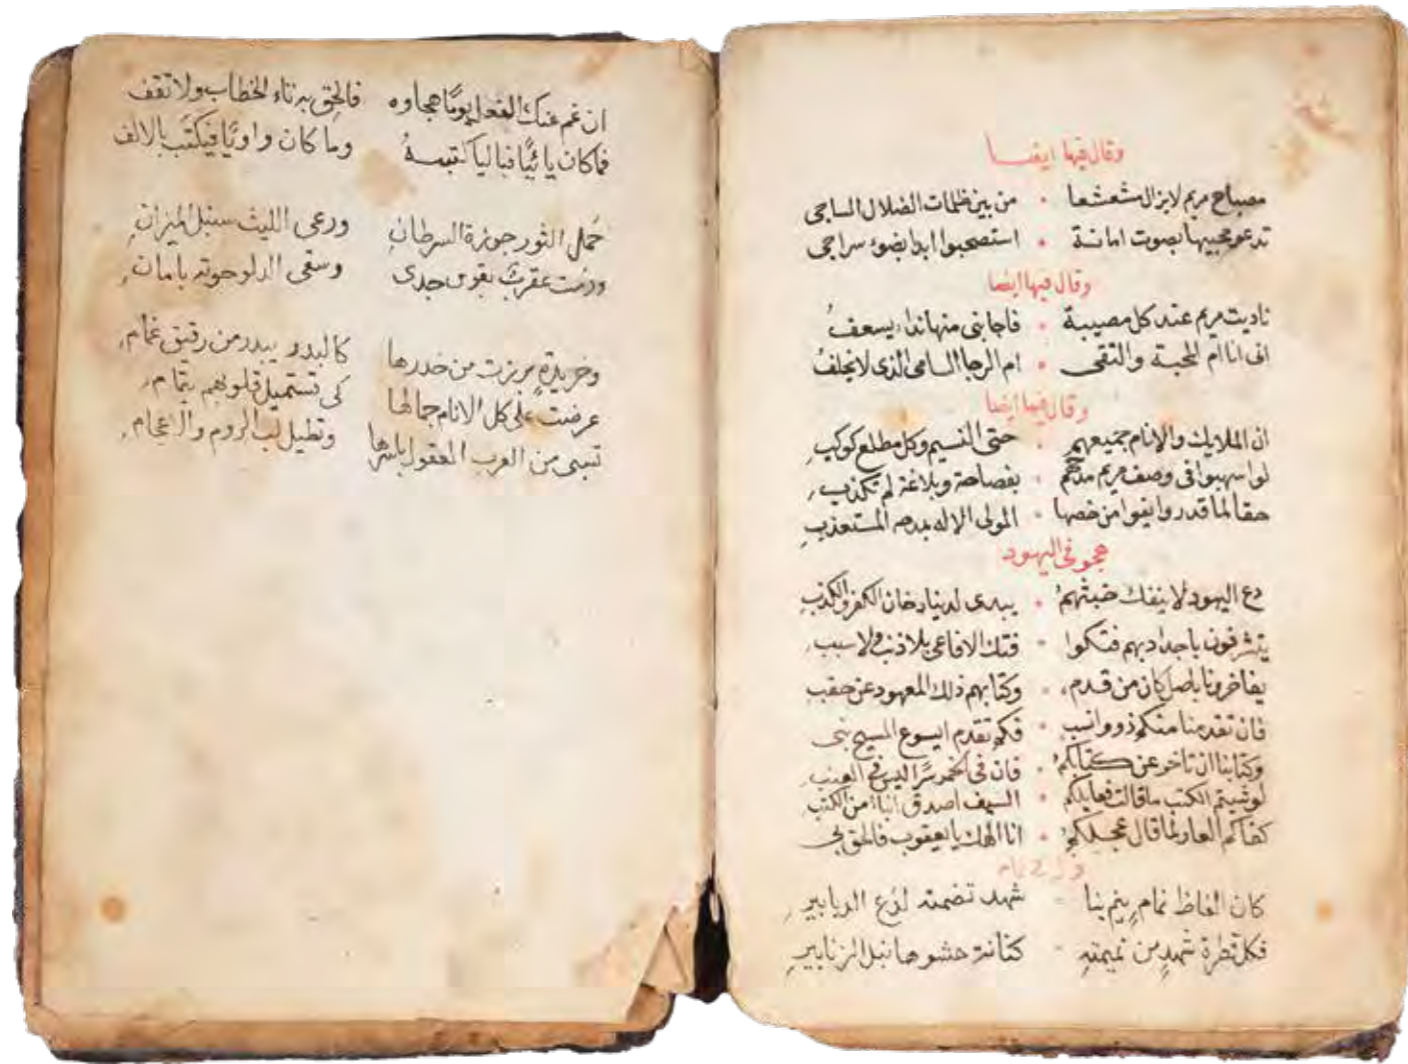 وقال فيها ايضا
مصباح مريم لا يزال مشعشعا • من بين ظلمات الضلال الساجى
تدعو محبيها بصوت امانة • استصحبوا ابدا بضوء سراجى
وقال فيها ايضا
ناديت مريم عند كل مصيبة • فاجابنى منها نداء يسعفُ
انى انا ام المحبة والتقى • ام الرجا السامى الذى لا يخلفُ
وقال فيها ايضا
ان الملايك والانام جميعهم • حتى النسيم وكل مطلع كوكبِ
لو اسهبوا فى وصف مريم مدحهم • بفصاحة وبلاغة لم تكذبِ
حقا لما قدروا يفوا من خصها • المولى الاله بمدحه المستعذبِ
هجو فى اليهود
دع اليهود لا ينفك خبثهمُ • يبدى لدينا دخان الكفر والكذبِ
يتشرفون باجدادٍ بهم فتكوا • فتك الافاعى بلا ذنب ولا سبب
يفاخرونا باصل كان من قدم • وكتابهم ذلك المعهود عن حقب
فان تقدمنا منكم ذووا نسب • فكم تقدم ايسوع المسيح نبى
وكتابنا ان تاخر عن كتابكمُ • فان فى الخمر سرًّا ليس فى العنبِ
لو شيتم الكتب ما قالت فعايلكم • السيف اصدق انباء من الكتبِ
كفاكم العار لما قال عجلكمُ • انا الهك يا يعقوب فالحق بى
كان الفاظ نمامٍ ينم بنا • شهد تضمنه لذع الدبابيرِ
فكل قطرة شهدٍ من نميمته • كنانة حشوها نبل الزنابيرِ
ان غم عنك الفعل يومًا هجاوه فالحق به تاء الخطاب ولا تقف
فما كان يائيًّا فباليا كتبتهُ وما كان واويًّا فيكتب بالالف
حُمل الثور جوزة السرطانِ ورعى الليث سنبل الميزانِ
ورمت عقربٌ بقوس جدى وسقى الدلو حوته بامانِ
وخريدةٍ برزت من خدرها كالبدر يبدر من رقيق غمامِ
عرضت على كل الانام جمالها كى تستميل قلوبهم بتمامِ
تسبى من العرب العقول باسرها وتطيل لب الروم والاعجامِ